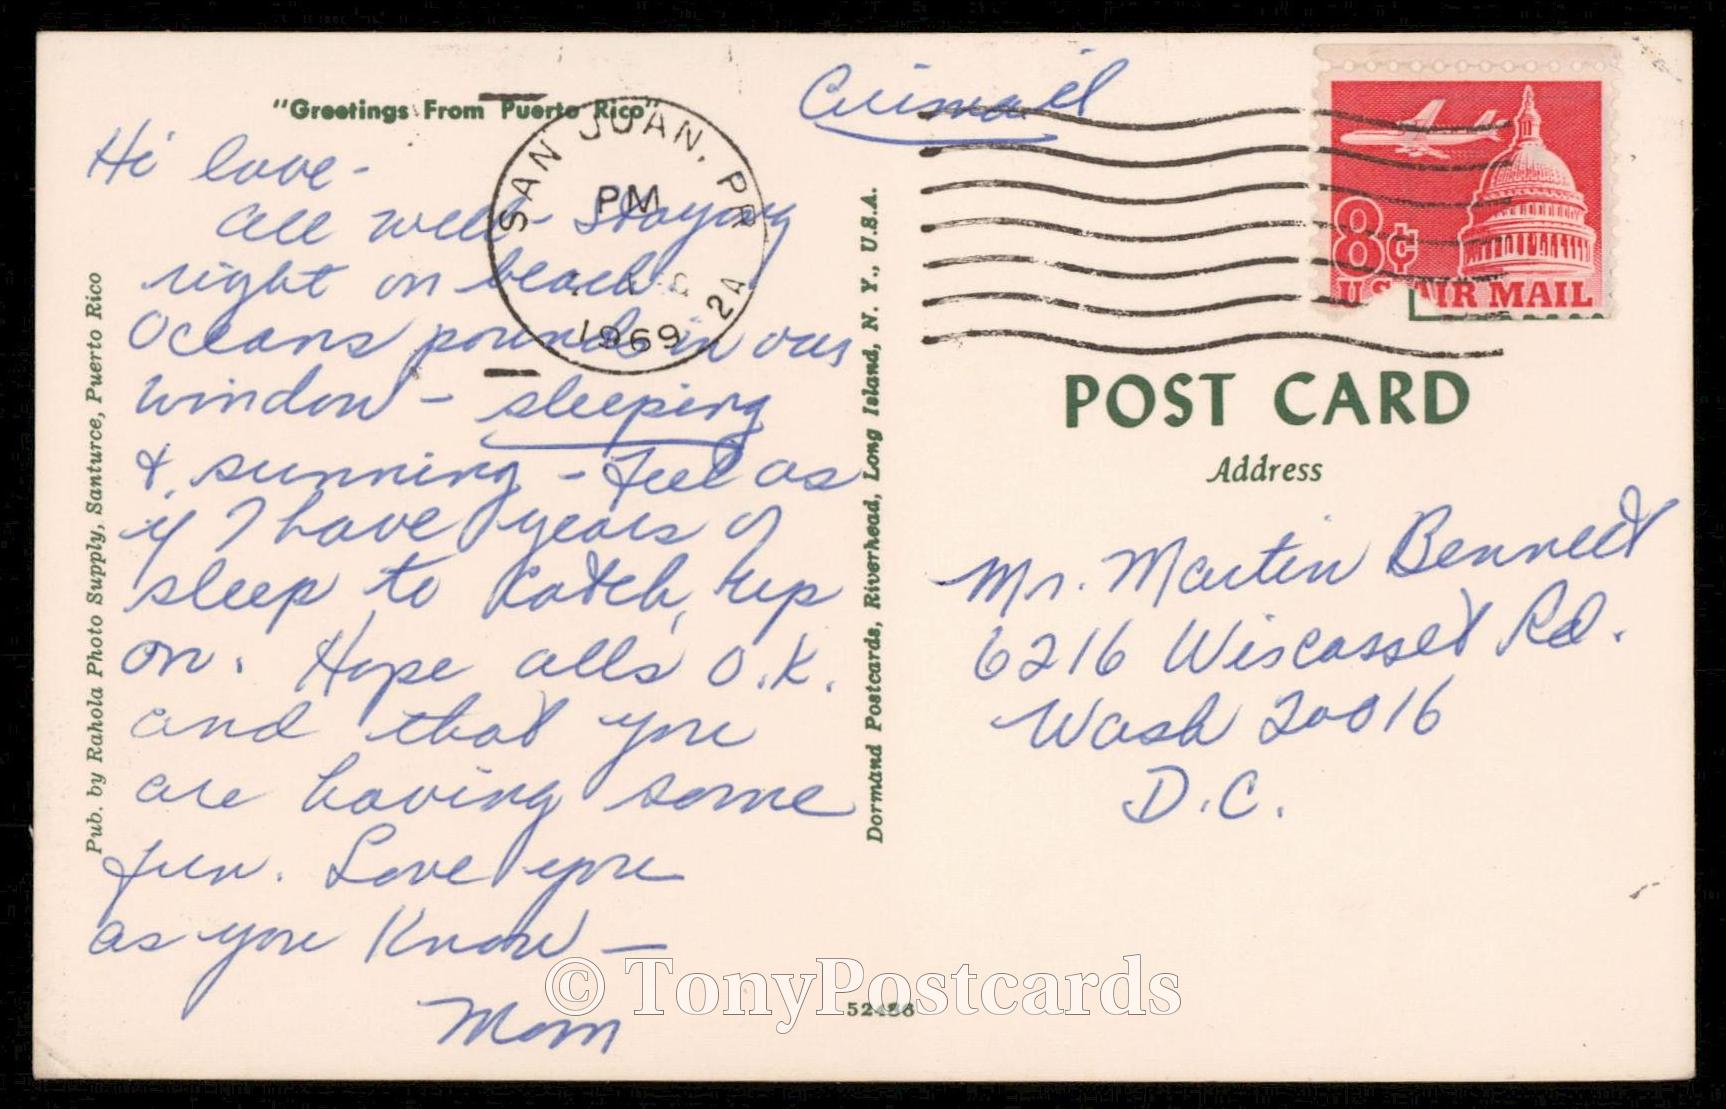 "Greetings From Puerto Rico"
Airmail
Hi love-
all well- staying
right on beach.
Oceans pounds in our
window - sleeping
& sunning - feel as
if I have years of
sleep to catch, up
on. Hope alls O.K.
and that you
are having some
fun. Love you
as you know -
Mom
SAN JUAN, PR
PM
1969
2A
8¢
U.S. AIR MAIL
POST CARD
Address
Mr. Martin Bennett
6216 Wiscasset Rd.
Wash 20016
D.C.
Pub. by Rahola Photo Supply, Santurce, Puerto Rico
Dormand Postcards, Riverhead, Long Island, N. Y., U.S.A.
© TonyPostcards